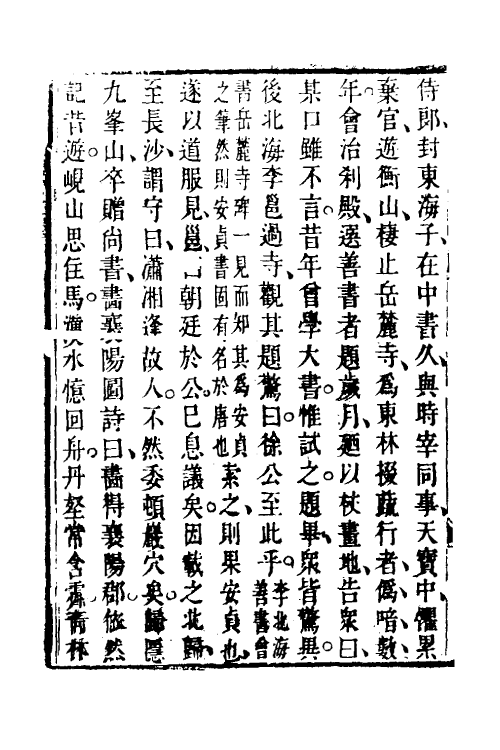 侍郎封東海子在中書久與時宰同事天寶中懼累
棄官遊衡山棲止岳麓寺爲東林掇蔬行者僞喑數
年會治刹殿選善書者題歲月廼以杖畫地告衆曰
某口雖不言昔年曾學大書惟試之題畢衆皆驚異
後北海李邕過寺觀其題驚曰徐公至此乎李北海善書會
書岳麓寺碑一見而知其爲安貞之筆然則安貞書固有名於唐也素之則果安貞也
遂以道服見邕曰朝廷於公已息議矣因載之北歸
至長沙謂守曰瀟湘逢故人不然委頓巖穴矣歸隱
九峯山卒贈尚書畵襄陽圖詩曰畵得襄陽郡依然
記昔遊峴山思住馬漢水憶回舟丹壑常含霽靑林